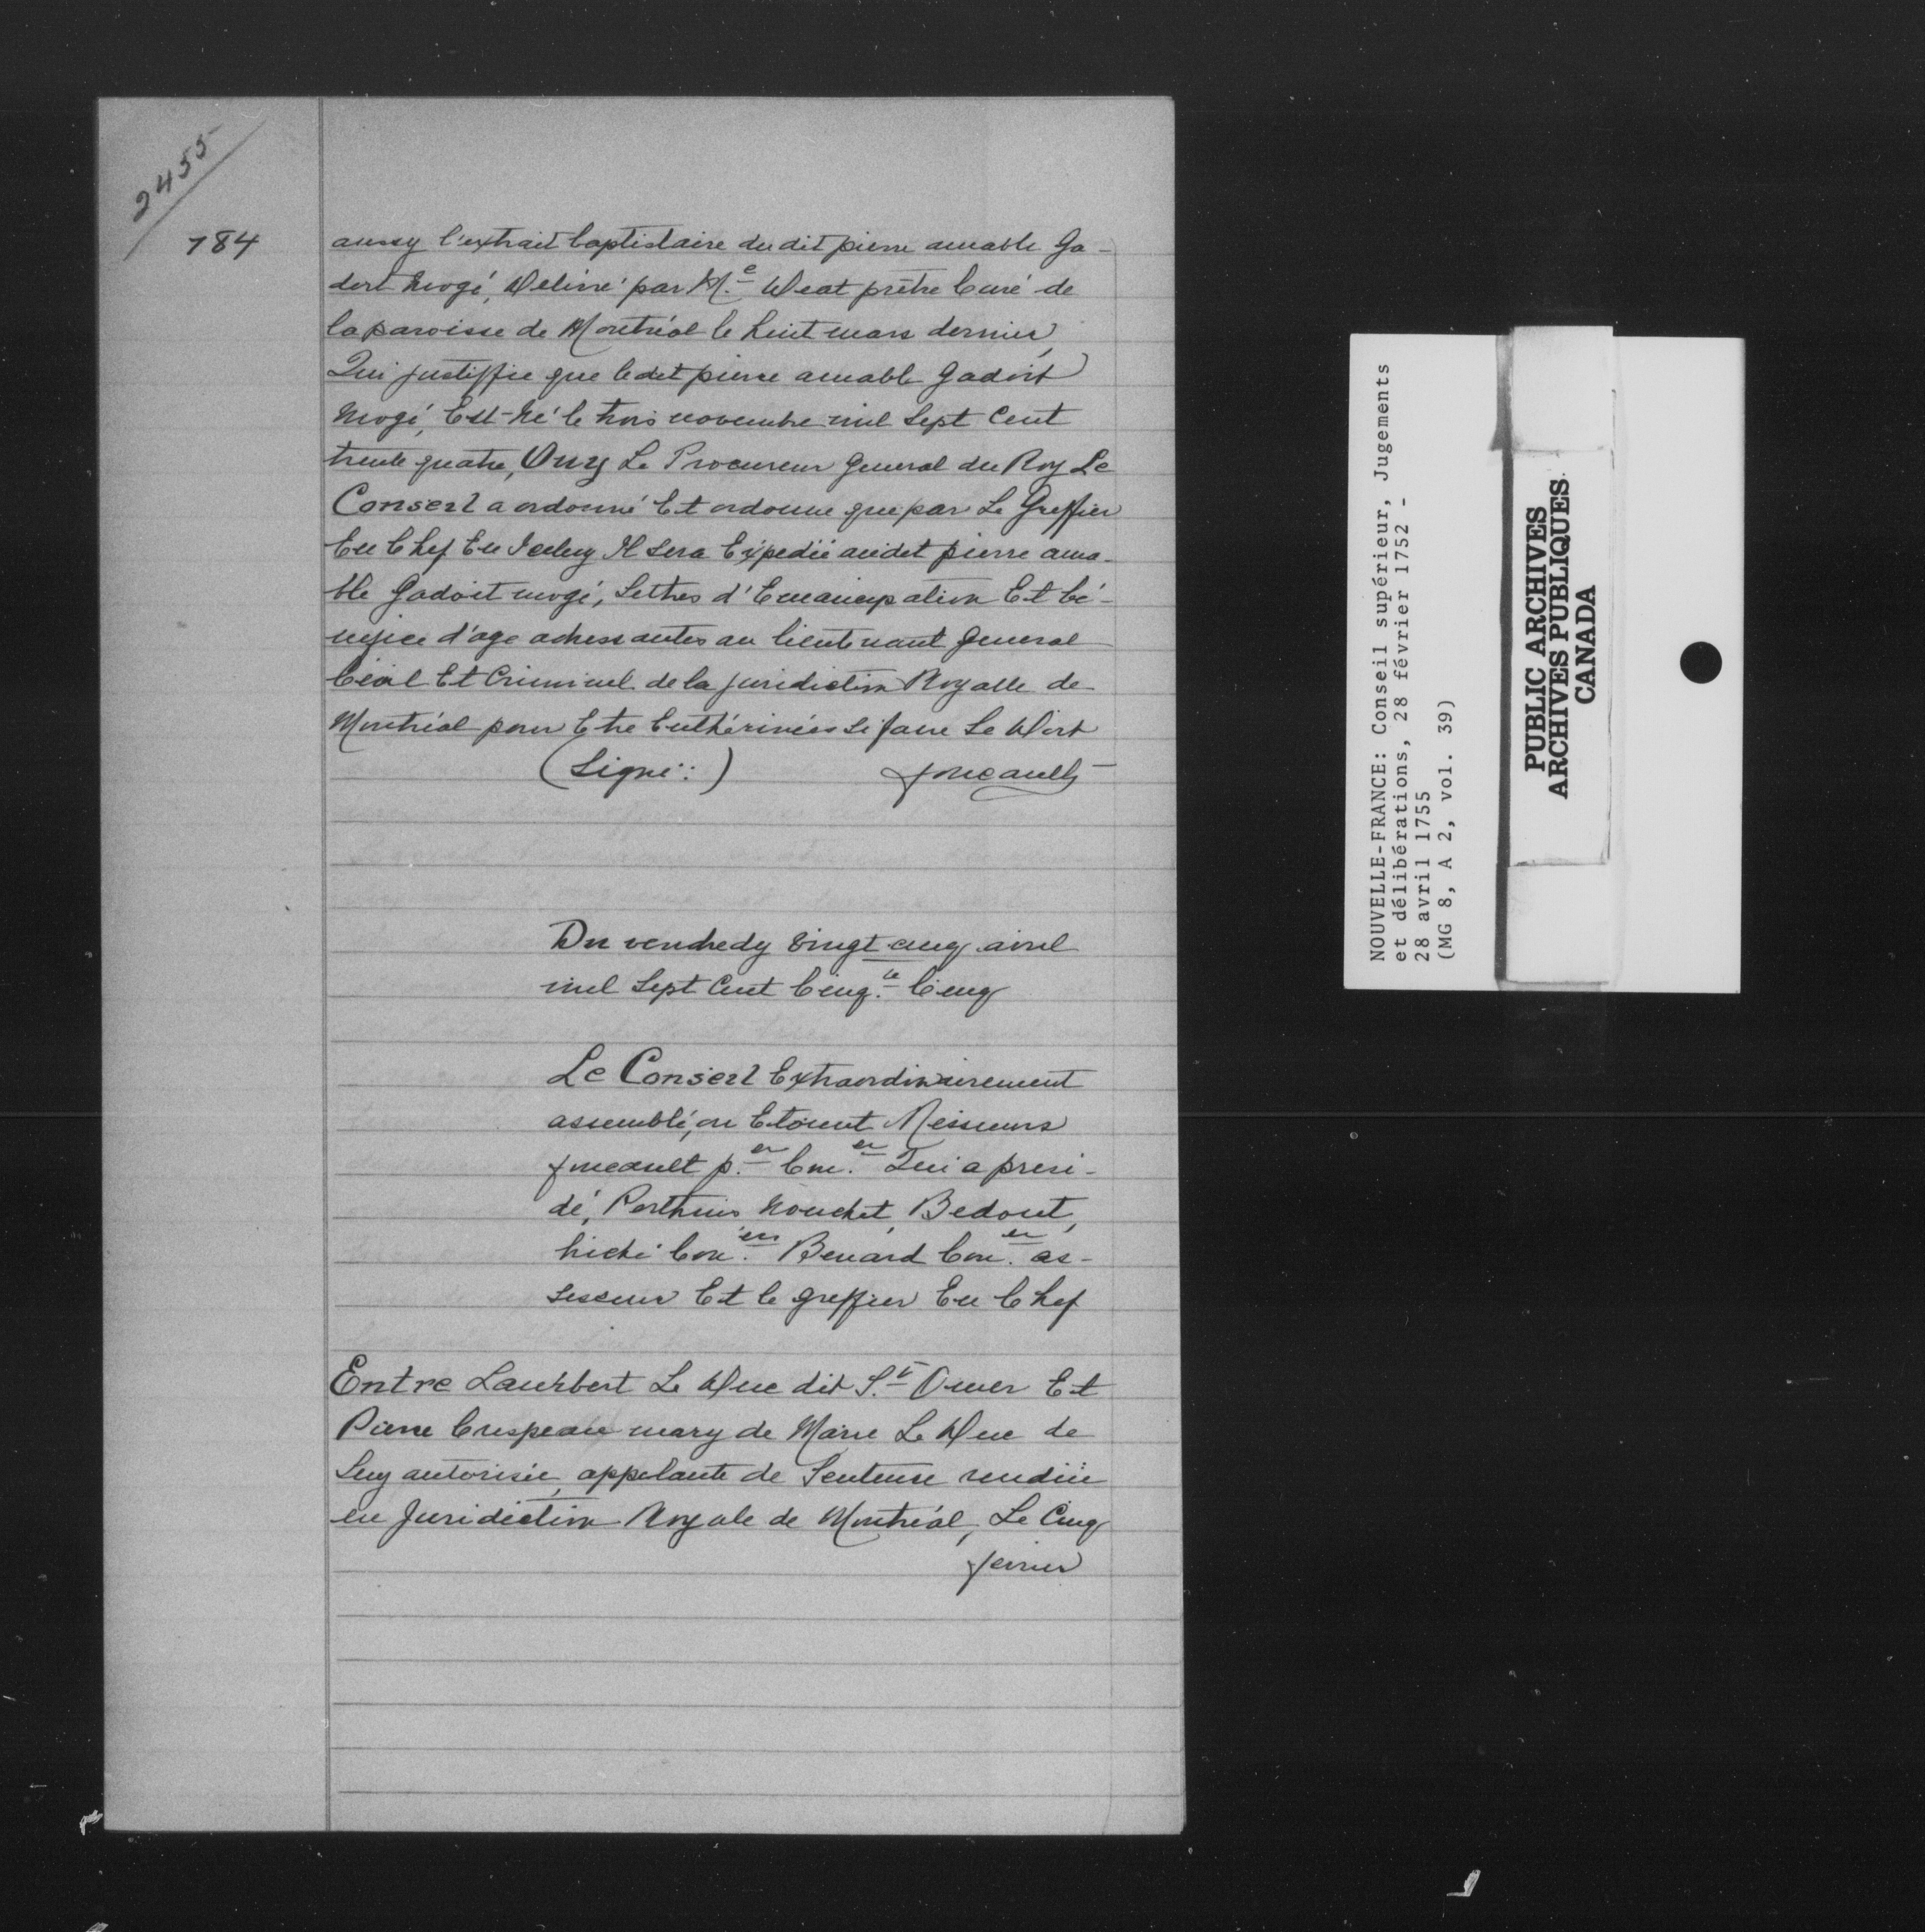 2455
784
aussy l'extrait baptistaire du dit pierre amable Ga-
dort mogé, Delivré par M.e Deat prêtre Curé de
la paroisse de Montréal le huit mars dernier,
Qui justiffie que ledit pierre amable gadoit
mogé, Est-né le trois novembre mil Sept Cent
trente quatre, Ouy Le Procureur general du Roy Le
Conseil a ordonné Et ordonne que par Le Greffier
En Chef En Iceluy Il sera Expedié audit pierre ama-
ble Gadoit mogé, Lettres d'Emancipation Et bé-
nefice d'age adressantes au lieutenant general
Civil Et Criminel de la juridiction Royalle de
Montréal pour Etre Enthérinées Si faire Se Doit
(Signé:) foucault
Du vendredy vingt cinq avril
mil Sept Cent Cinq.te Cinq
Le Conseil Extraordinairement
assemblé, ou Etoient Messieurs
foucault p.er Con.er Qui a presi-
dé, Perthuis Nouchet, Bedout,
hiché Con.ers Benard Con.er as-
sesseur Et le greffier En Chef
Entre Lambert Le Duc dit S.t Omer Et
Pierre Crespeau mary de Marie Le Duc de
Luy autorisée, appelante de Sentense rendüe
en Juridiction Royale de Montréal, Le Cinq
fevrier
NOUVELLE-FRANCE: Conseil supérieur, Jugements
et délibérations, 28 février 1752 -
28 avril 1755
(MG 8, A 2, vol. 39)
PUBLIC ARCHIVES
ARCHIVES PUBLIQUES
CANADA